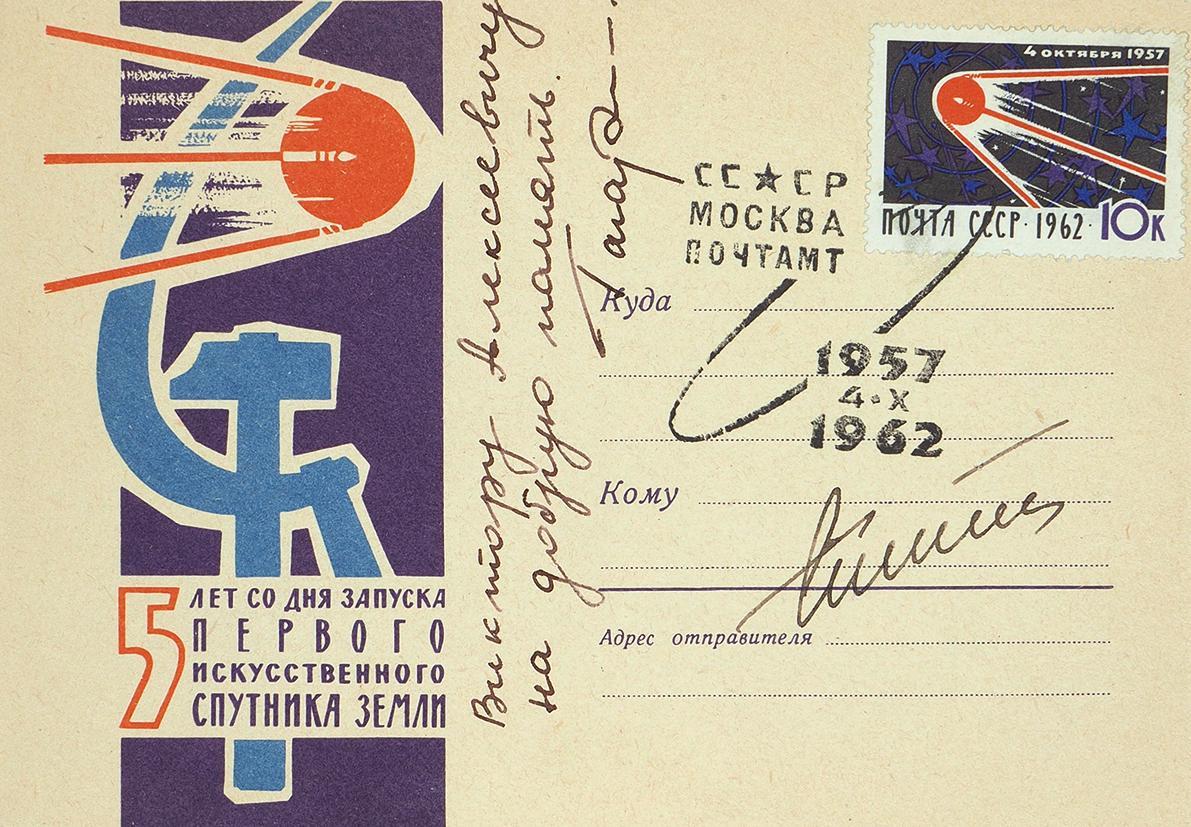 4 ОКТЯБРЯ 1957
ПОЧТА СССР · 1962 · 10К
СС★СР
МОСКВА
ПОЧТАМТ
1957
4·X
1962
Куда
Кому
Адрес отправителя
5 ЛЕТ СО ДНЯ ЗАПУСКА
ПЕРВОГО
ИСКУССТВЕННОГО
СПУТНИКА ЗЕМЛИ
Виктору Алексеевичу
на добрую память.